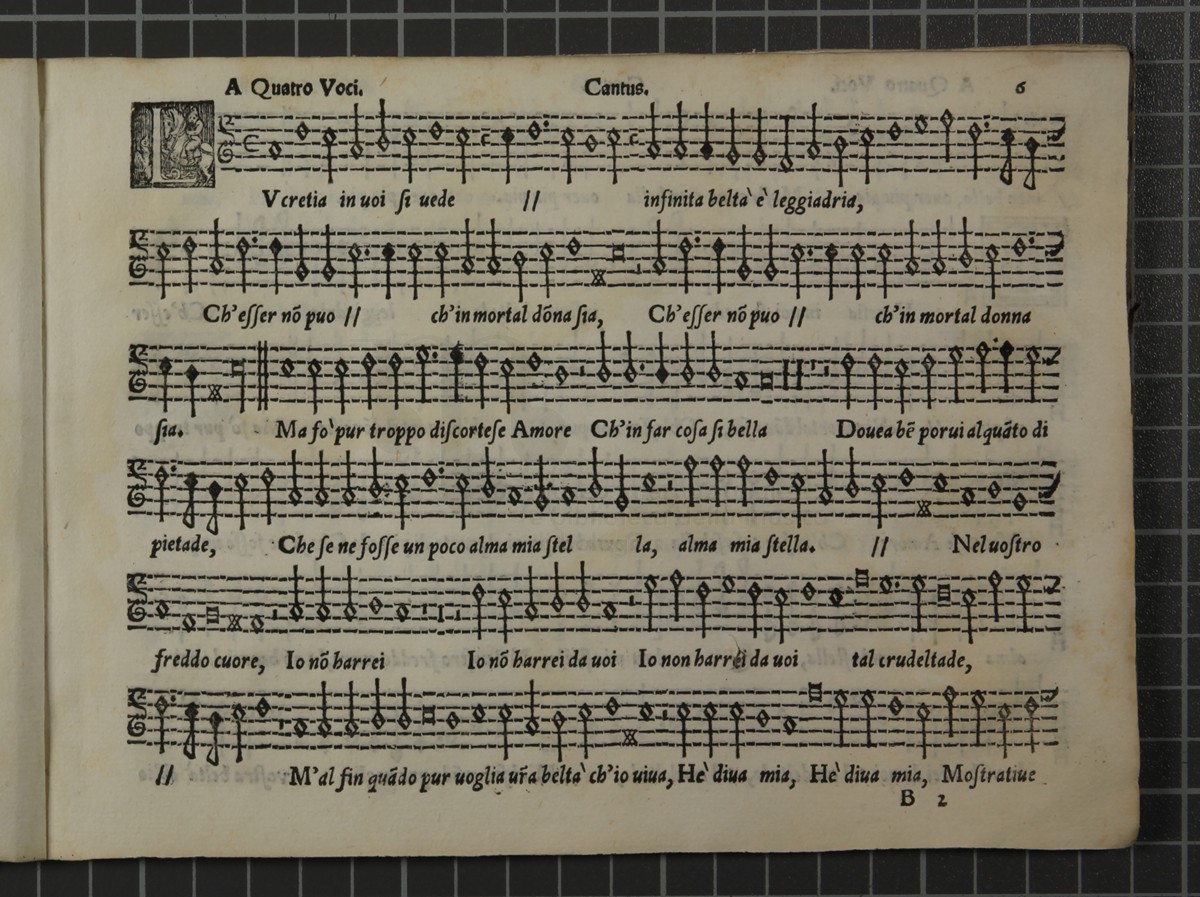 A Quatro Voci. Cantus. 6
LVcretia in uoi ſi uede // infinita belta` e` leggiadria,
Ch'eſſer nõ puo // ch'in mortal dõna ſia, Ch'eſſer nõ puo // ch'in mortal donna
ſia. Ma fo` pur troppo diſcorteſe Amore Ch'in far coſa ſi bella Douea bẽ porui alquãto di
pietade, Che ſe ne foſſe un poco alma mia ſtel la, alma mia ſtella. // Nel uoſtro
freddo cuore, Io nõ harrei Io nõ harrei da uoi Io non harrei da uoi tal crudeltade,
// M'al fin quãdo pur uoglia ur̃a belta` ch'io uiua, He` diua mia, He` diua mia, Moſtratiue
B 2